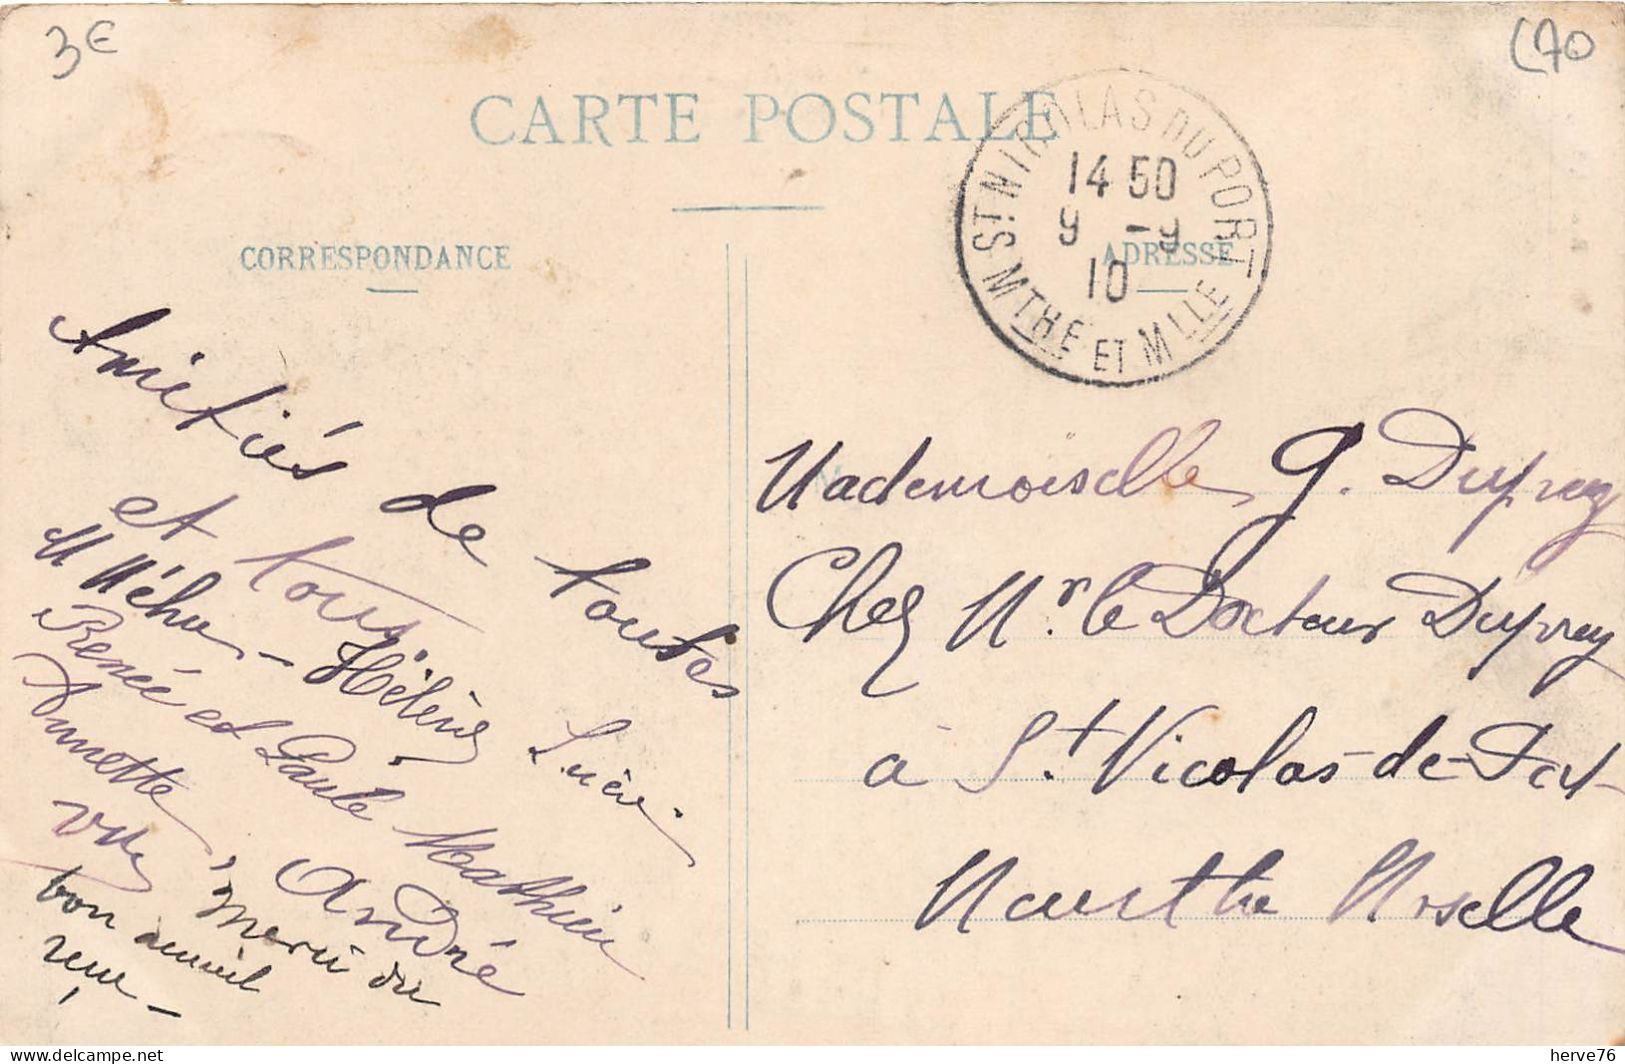 3€
CARTE POSTALE
ST NICOLAS DU PORT
14 50
9 -9
10
MTHE ET MLLE
CORRESPONDANCE
ADRESSE
Amitiés de toutes
et tous
M Méhu - Hélène Lucie.
Renée et Paule Mathieu
Annette, André
Merci du
bon accueil
reçu -
Mademoiselle G. Duprey
Chez Mr. le Docteur Duprey
à St. Nicolas-de-Port
Meurthe Moselle
delcampe.net
herve76